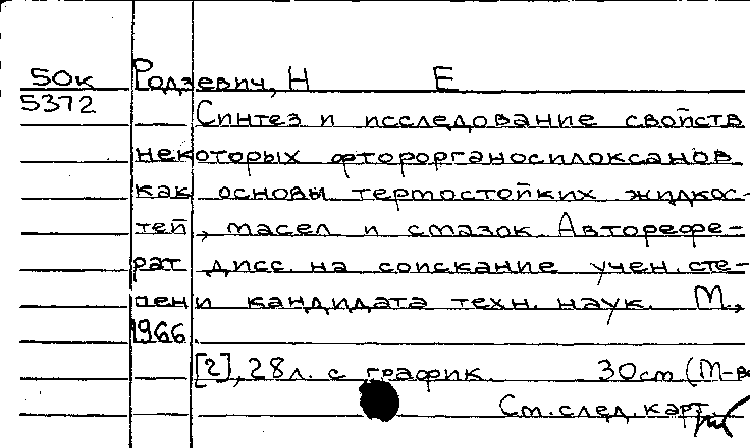 50к Родзевич, Н Е
5372 Синтез и исследование свойств
некоторых фторорганосилоксанов
как основы термостойких жидкос-
тей, масел и смазок. Авторефе-
рат дисс. на соискание учен. сте-
пени кандидата техн. наук. М.,
1966.
[2], 28л. с график. 30см (М-во
См. след. карт.